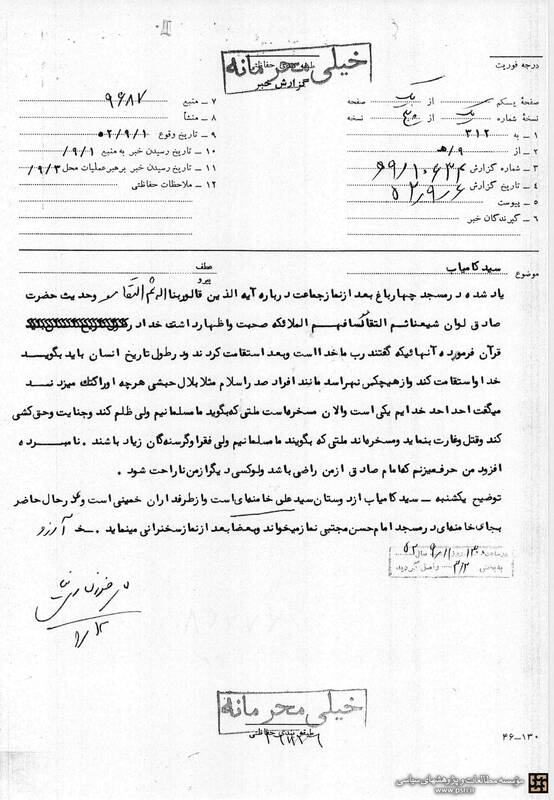 خیلی محرمانه
طبقه‌بندی حفاظتی
گزارش خبر
درجه فوریت
صفحهٔ یکم از یک صفحه
نسخهٔ شماره یک از نسخه
۱ ـ به ۳۱۲
۲ ـ از ۹/ه
۳ ـ شماره گزارش
۴ ـ تاریخ گزارش
۵ ـ پیوست
۶ ـ گیرندگان خبر
۷ ـ منبع ۹۶۸۷
۸ ـ منشأ
۹ ـ تاریخ وقوع ۵۲/۹/۱
۱۰ ـ تاریخ رسیدن خبر به منبع ۹/۱/
۱۱ ـ تاریخ رسیدن خبر برهبرعملیات محل ۹/۳/
۱۲ ـ ملاحظات حفاظتی
موضوع سید کامیاب
عطف
پیرو
یاد شده در مسجد چهارباغ بعد از نماز جماعت درباره آیه الذین قالوربنااله ثم التقا و حدیث حضرت
صادق لوان شیعناثم التقاکسافهم الملائکه صحبت واظهارداشت خدا در
قرآن فرموده آنهائیکه گفتند رب ما خدا است وبعد استقامت کردند ودرطول تاریخ انسان باید بگوید
خدا واستقامت کند وازهیچکس نهراسد مانند افراد صدراسلام مثلا بلال حبشی هرچه اوراکتک میزدند
میگفت احد احد خدایم یکی است والان مسخره است ملتی که بگوید ما مسلمانیم ولی ظلم کند وجنایت وحق کشی
کند وقتل وغارت بنماید ومسخره اند ملتی که بگویند ما مسلمانیم ولی فقرا وگرسنه گان زیاد باشند . نامبرده
افزود من حرف میزنم که امام صادق ازمن راضی باشد ولوکسی دیگرازمن ناراحت شود .
توضیح یکشنبه ـ سید کامیاب ازدوستان سید علی خامنه‌ای است وازطرفداران خمینی است ودرحال حاضر
بجای خامنه‌ای درمسجد امام حسن مجتبی نماز میخواند وبعضا بعد ازنماز سخنرانی مینماید . ـ خ آرزو
در ساعت روز ۹/۱۱ سال ۵۲
به بخش ۳۱۲ واصل گردید
خیلی محرمانه
طبقه‌بندی حفاظتی
۴۶ـ۱۳۰
مؤسسه مطالعات و پژوهشهای سیاسی
www.psri.ir